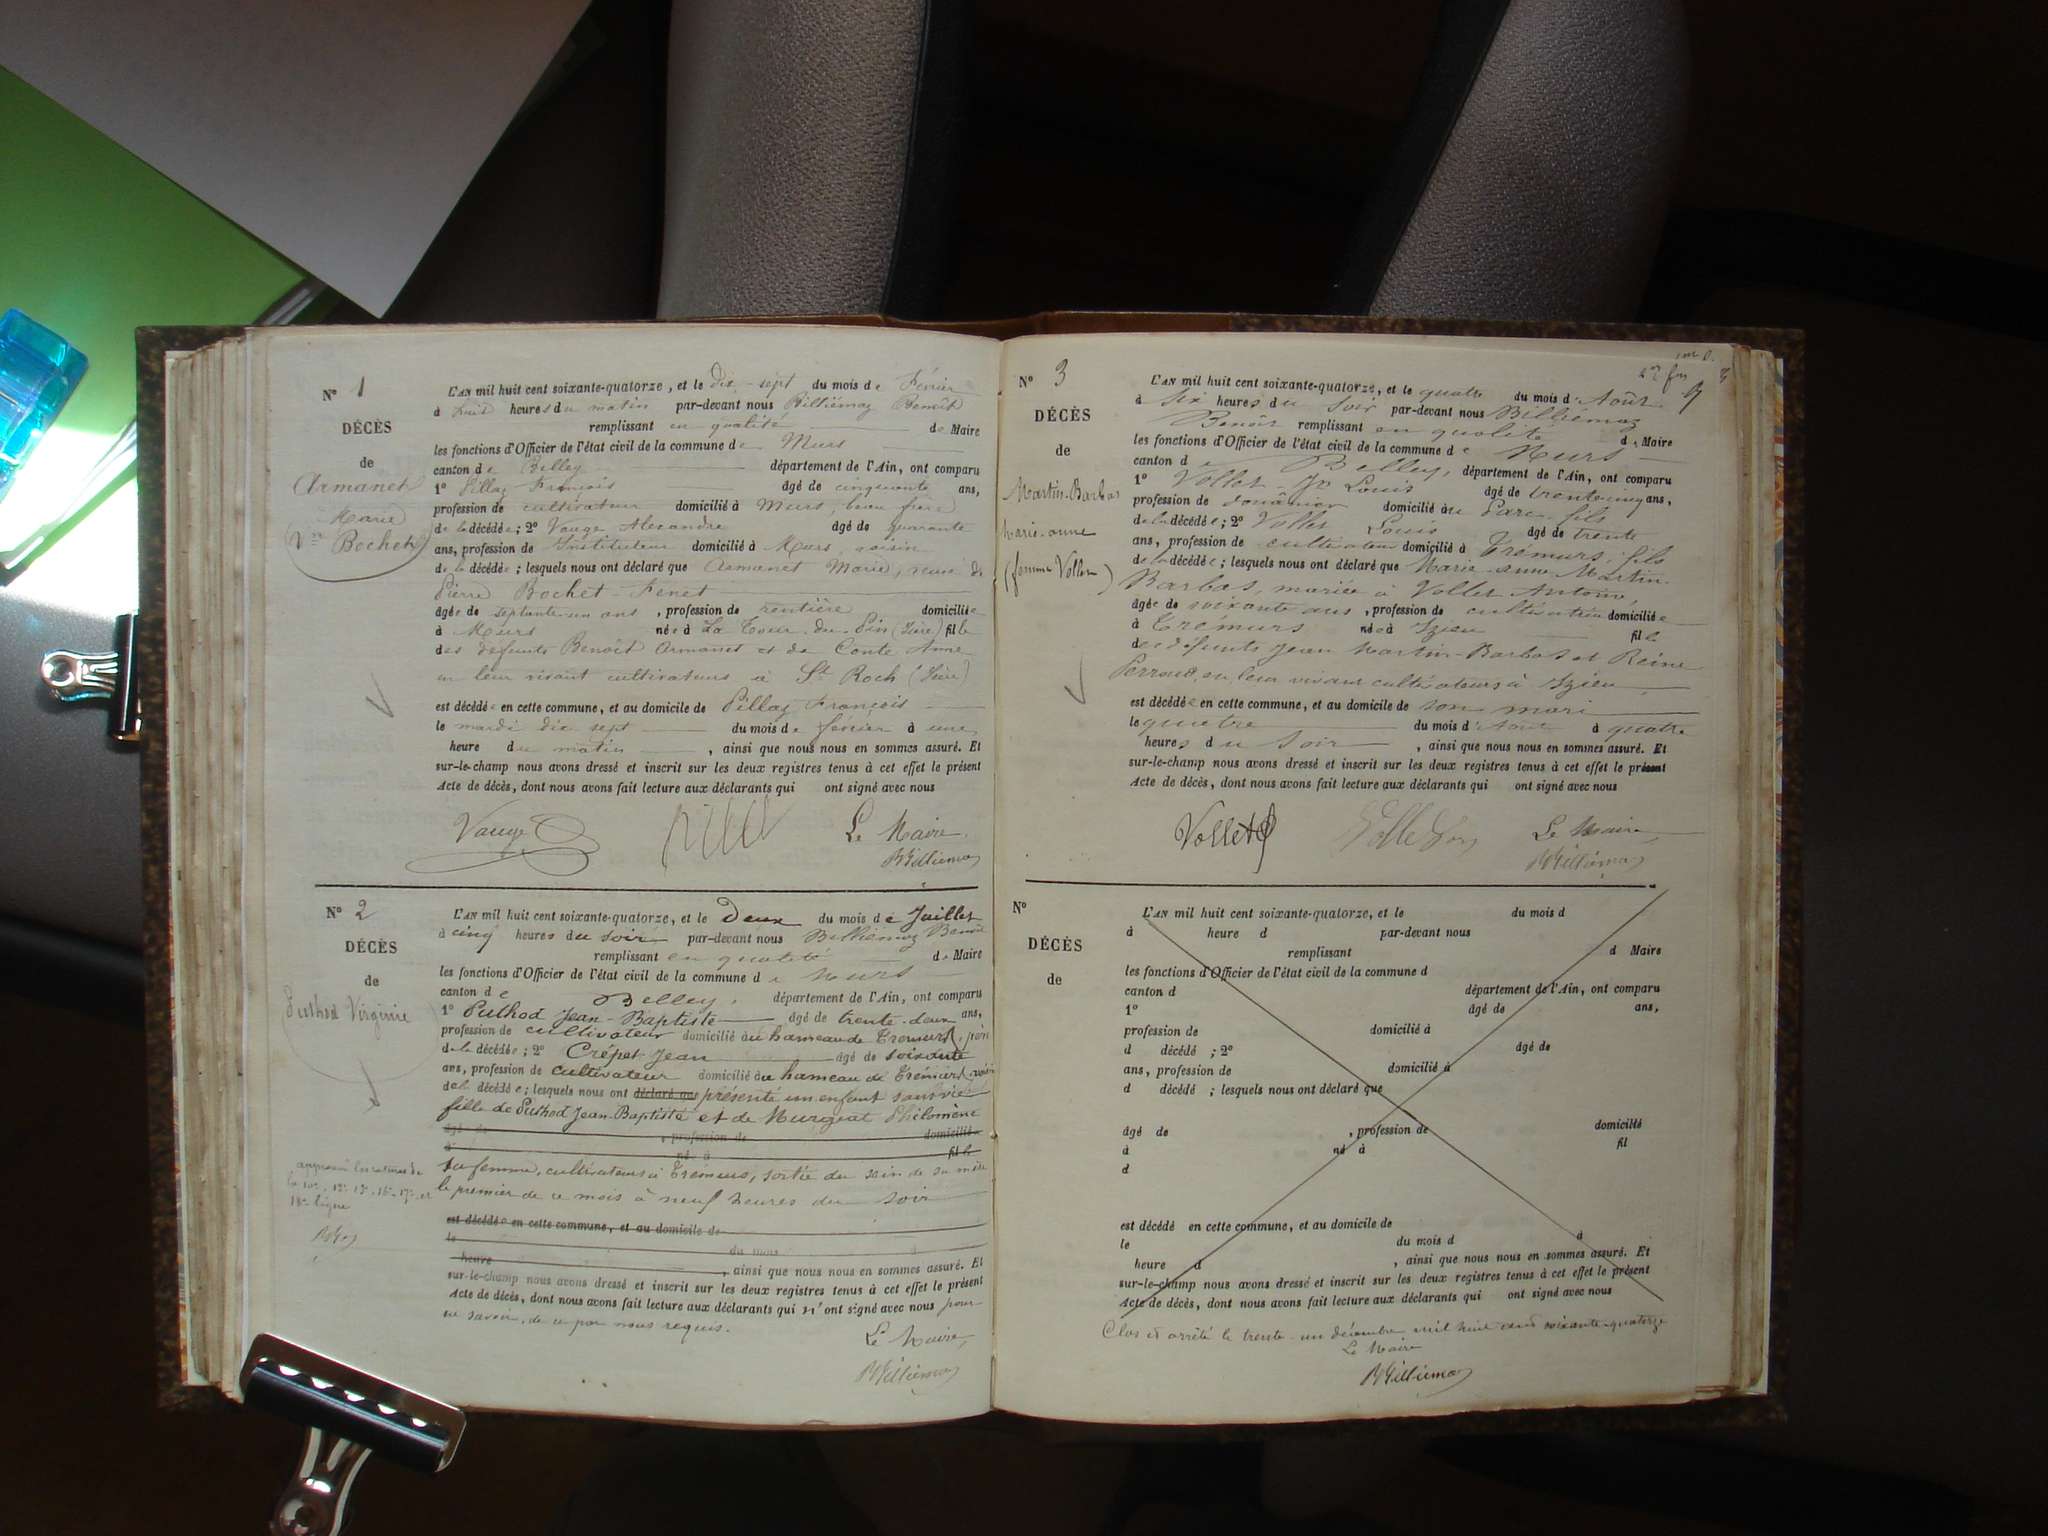 N° 1
DÉCÈS
de
Armanet
Marie
(Vve Bochet)
L'AN mil huit cent soixante-quatorze, et le Dix-sept du mois de Février
à huit heures du matin par-devant nous Billiémaz Benoît
remplissant en qualité de Maire
les fonctions d'Officier de l'état civil de la commune de Murs
canton de Belley département de l'Ain, ont comparu
1° Pillaz François âgé de cinquante ans,
profession de cultivateur domicilié à Murs, beau frère
de la décédée; 2° Vauge Alexandre âgé de quarante
ans, profession de Instituteur domicilié à Murs, voisin
de la décédée; lesquels nous ont déclaré que Armanet Marie, veuve de
Pierre Bochet-Fenet
âgée de septante-un ans, profession de rentière domiciliée
à Murs née à La Tour-du-Pin (Isère) fille
des défunts Benoît Armanet et de Conte Anne
en leur vivant cultivateurs à St Roch (Isère)
est décédée en cette commune, et au domicile de Pillaz François
le mardi dix sept du mois de février à une
heure du matin, ainsi que nous nous en sommes assuré. Et
sur-le-champ nous avons dressé et inscrit sur les deux registres tenus à cet effet le présent
Acte de décès, dont nous avons fait lecture aux déclarants qui ont signé avec nous
Vauge Le Maire,
Billiémaz
N° 2
DÉCÈS
de
Puthod Virginie
L'AN mil huit cent soixante-quatorze, et le Deux du mois de Juillet
à cinq heures du soir par-devant nous Billiémaz Benoît
remplissant en qualité de Maire
les fonctions d'Officier de l'état civil de la commune de Murs
canton de Belley, département de l'Ain, ont comparu
1° Puthod Jean-Baptiste âgé de trente-deux ans,
profession de cultivateur domicilié au hameau de Trémurs, père
de la décédée; 2° Crépet Jean âgé de soixante
ans, profession de cultivateur domicilié au hameau de Trémurs, voisin
de la décédée; lesquels nous ont déclaré que présenté un enfant sans vie
fille de Puthod Jean-Baptiste et de Murgeat Philomène
âgé de , profession de domicilié
à né à fil
sa femme, cultivateurs à Trémurs, sortie du sein de sa mère
le premier de ce mois à neuf heures du soir
est décédé en cette commune, et au domicile de
le du mois à
heure , ainsi que nous nous en sommes assuré. Et
sur-le-champ nous avons dressé et inscrit sur les deux registres tenus à cet effet le présent
Acte de décès, dont nous avons fait lecture aux déclarants qui n'ont signé avec nous pour
ne savoir, de ce par nous requis.
Le Maire,
Billiémaz
N° 3
DÉCÈS
de
Martin-Barbas
Marie-anne
(femme Vollet)
L'AN mil huit cent soixante-quatorze, et le quatre du mois d'Août
à Six heures du Soir par-devant nous Billiémaz
Benoît remplissant en qualité de Maire
les fonctions d'Officier de l'état civil de la commune de Murs
canton de Belley, département de l'Ain, ont comparu
1° Vollet Louis âgé de ans,
profession de douânier domicilié au Parc, fils
de la décédée; 2° Vollet Louis âgé de trente
ans, profession de cultivateur domicilié à Trémurs, fils
de la décédée; lesquels nous ont déclaré que Marie-anne Martin-
Barbas, mariée à Vollet Antoine,
âgée de soixante ans, profession de domiciliée
à Trémurs née à Izieu fille
de défunts Jean Martin-Barbas et Reine
Perroud, en leur vivant cultivateurs à Izieu
est décédée en cette commune, et au domicile de son mari
le quatre du mois d'Août à quatre
heures du Soir, ainsi que nous nous en sommes assuré. Et
sur-le-champ nous avons dressé et inscrit sur les deux registres tenus à cet effet le présent
Acte de décès, dont nous avons fait lecture aux déclarants qui ont signé avec nous
Vollet Le Maire
Billiémaz
N°
DÉCÈS
de
L'AN mil huit cent soixante-quatorze, et le du mois d
à heure d par-devant nous
remplissant d Maire
les fonctions d'Officier de l'état civil de la commune d
canton d département de l'Ain, ont comparu
1° âgé de ans,
profession de domicilié à
d décédé ; 2° âgé de
ans, profession de domicilié à
d décédé ; lesquels nous ont déclaré que
âgé de , profession de domicilié
à né à fil
d
est décédé en cette commune, et au domicile de
le du mois d à
heure d , ainsi que nous nous en sommes assuré. Et
sur-le-champ nous avons dressé et inscrit sur les deux registres tenus à cet effet le présent
Acte de décès, dont nous avons fait lecture aux déclarants qui ont signé avec nous
Clos et arrêté le trente-un décembre mil huit cent soixante-quatorze
Le Maire
Billiémaz